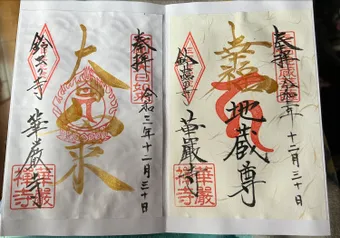 奉拝
令和三年十二月三十日
幸福
地蔵尊
鈴虫の寺
華厳寺
華嚴禅寺
奉拝
令和三年十二月三十日
大日如来
鈴虫の寺
華厳寺
華嚴禅寺